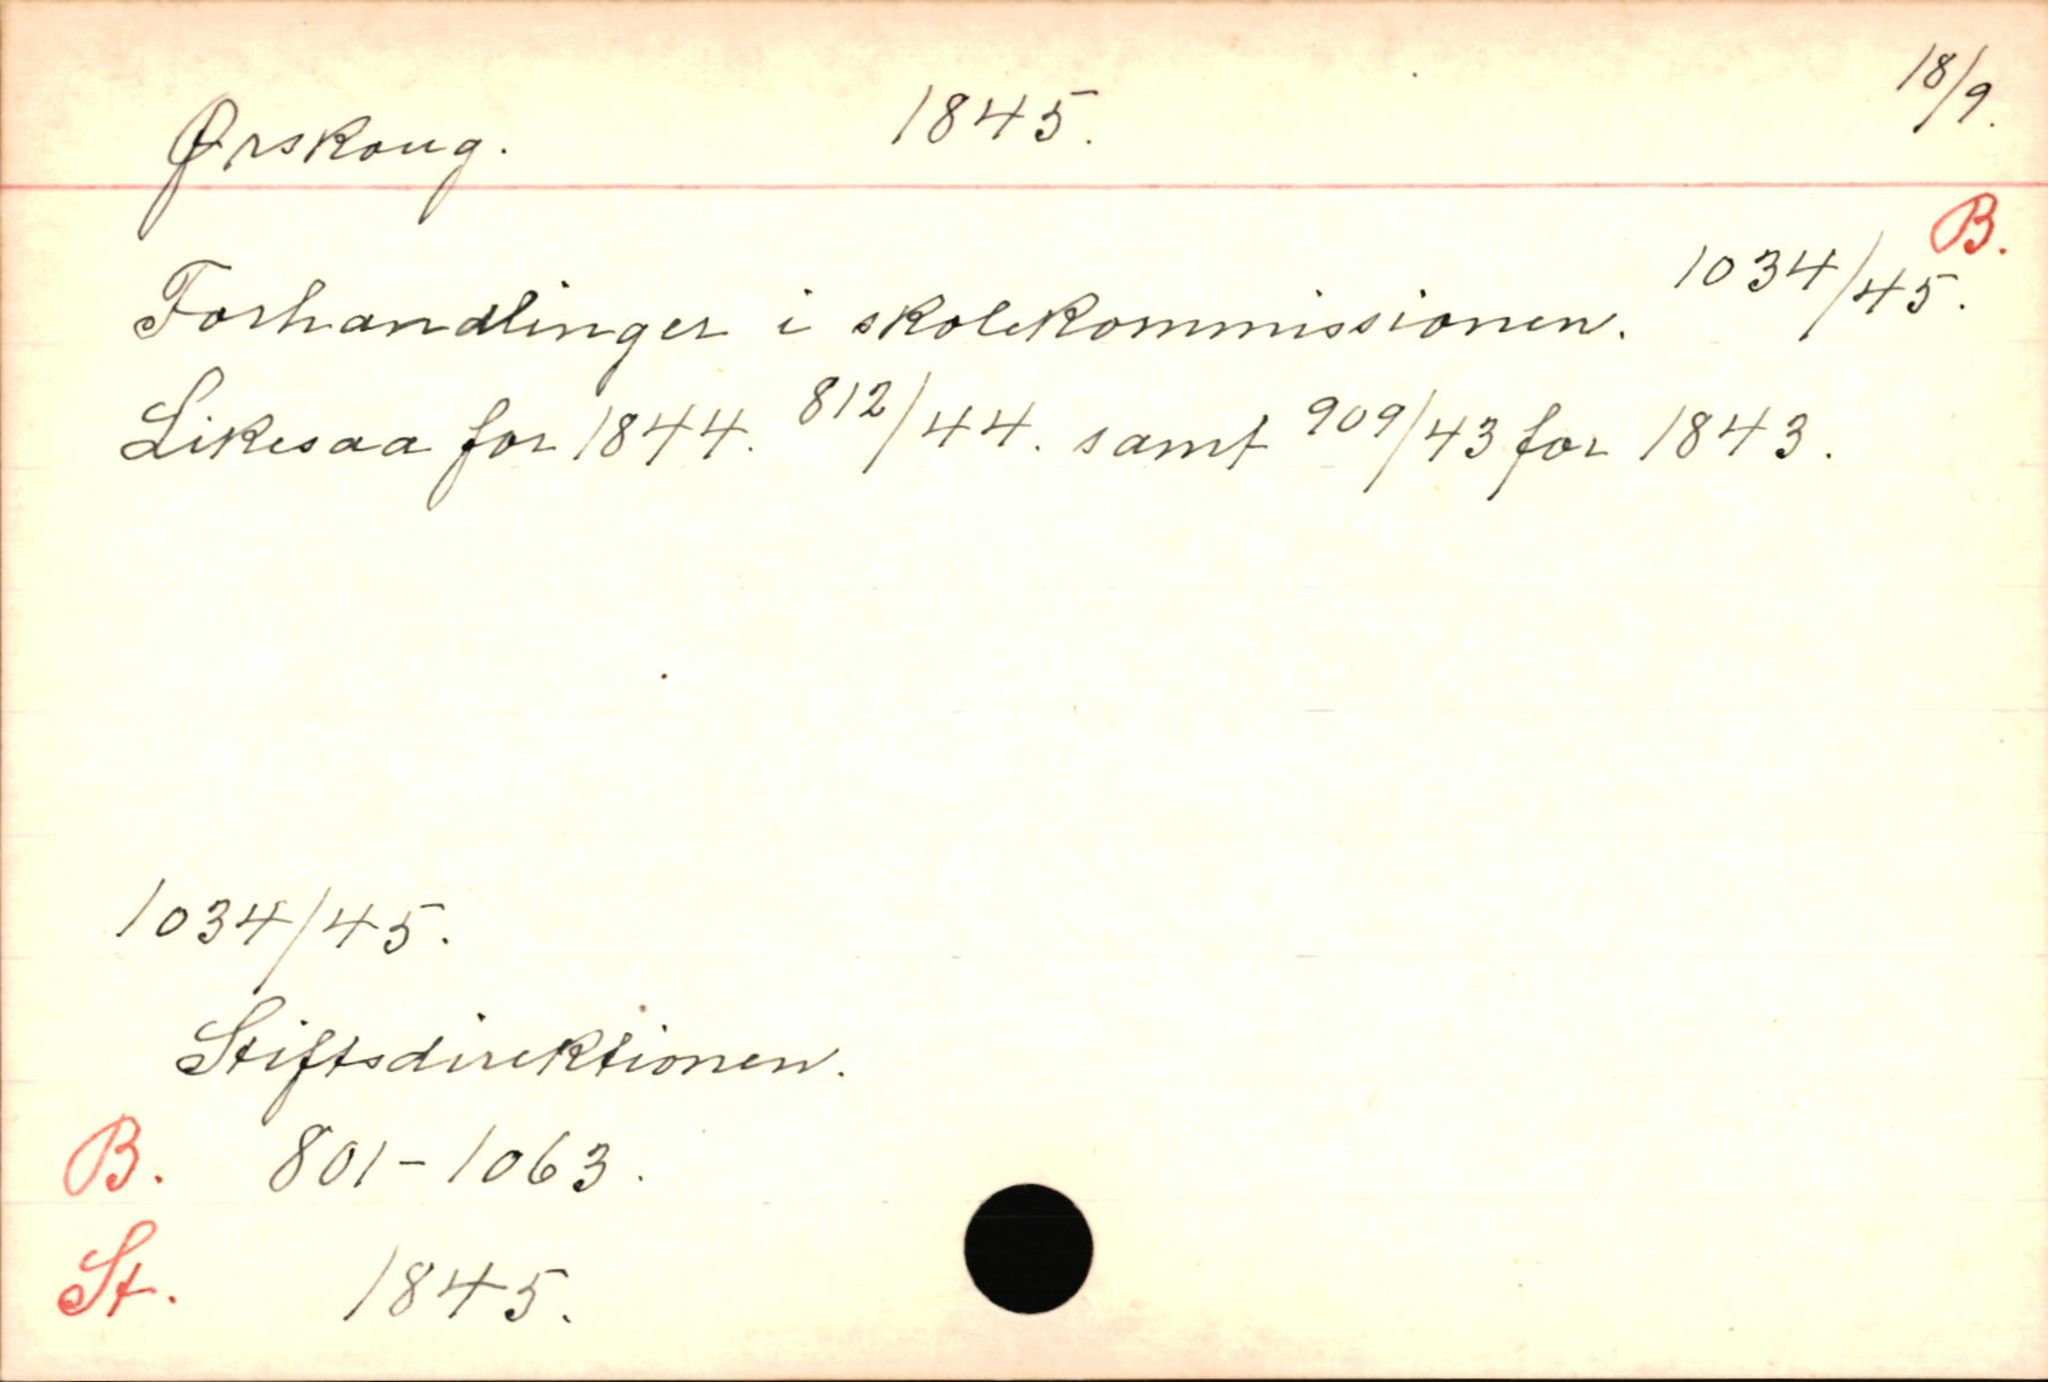 Ørskoug. 1845. 18/9.
B.
Forhandlinger i skolekommissionen. 1034/45.
Likesaa for 1844. 812/44. samt 909/43 for 1843.
1034/45.
Stiftsdirektionen.
B. 801-1063.
St. 1845.